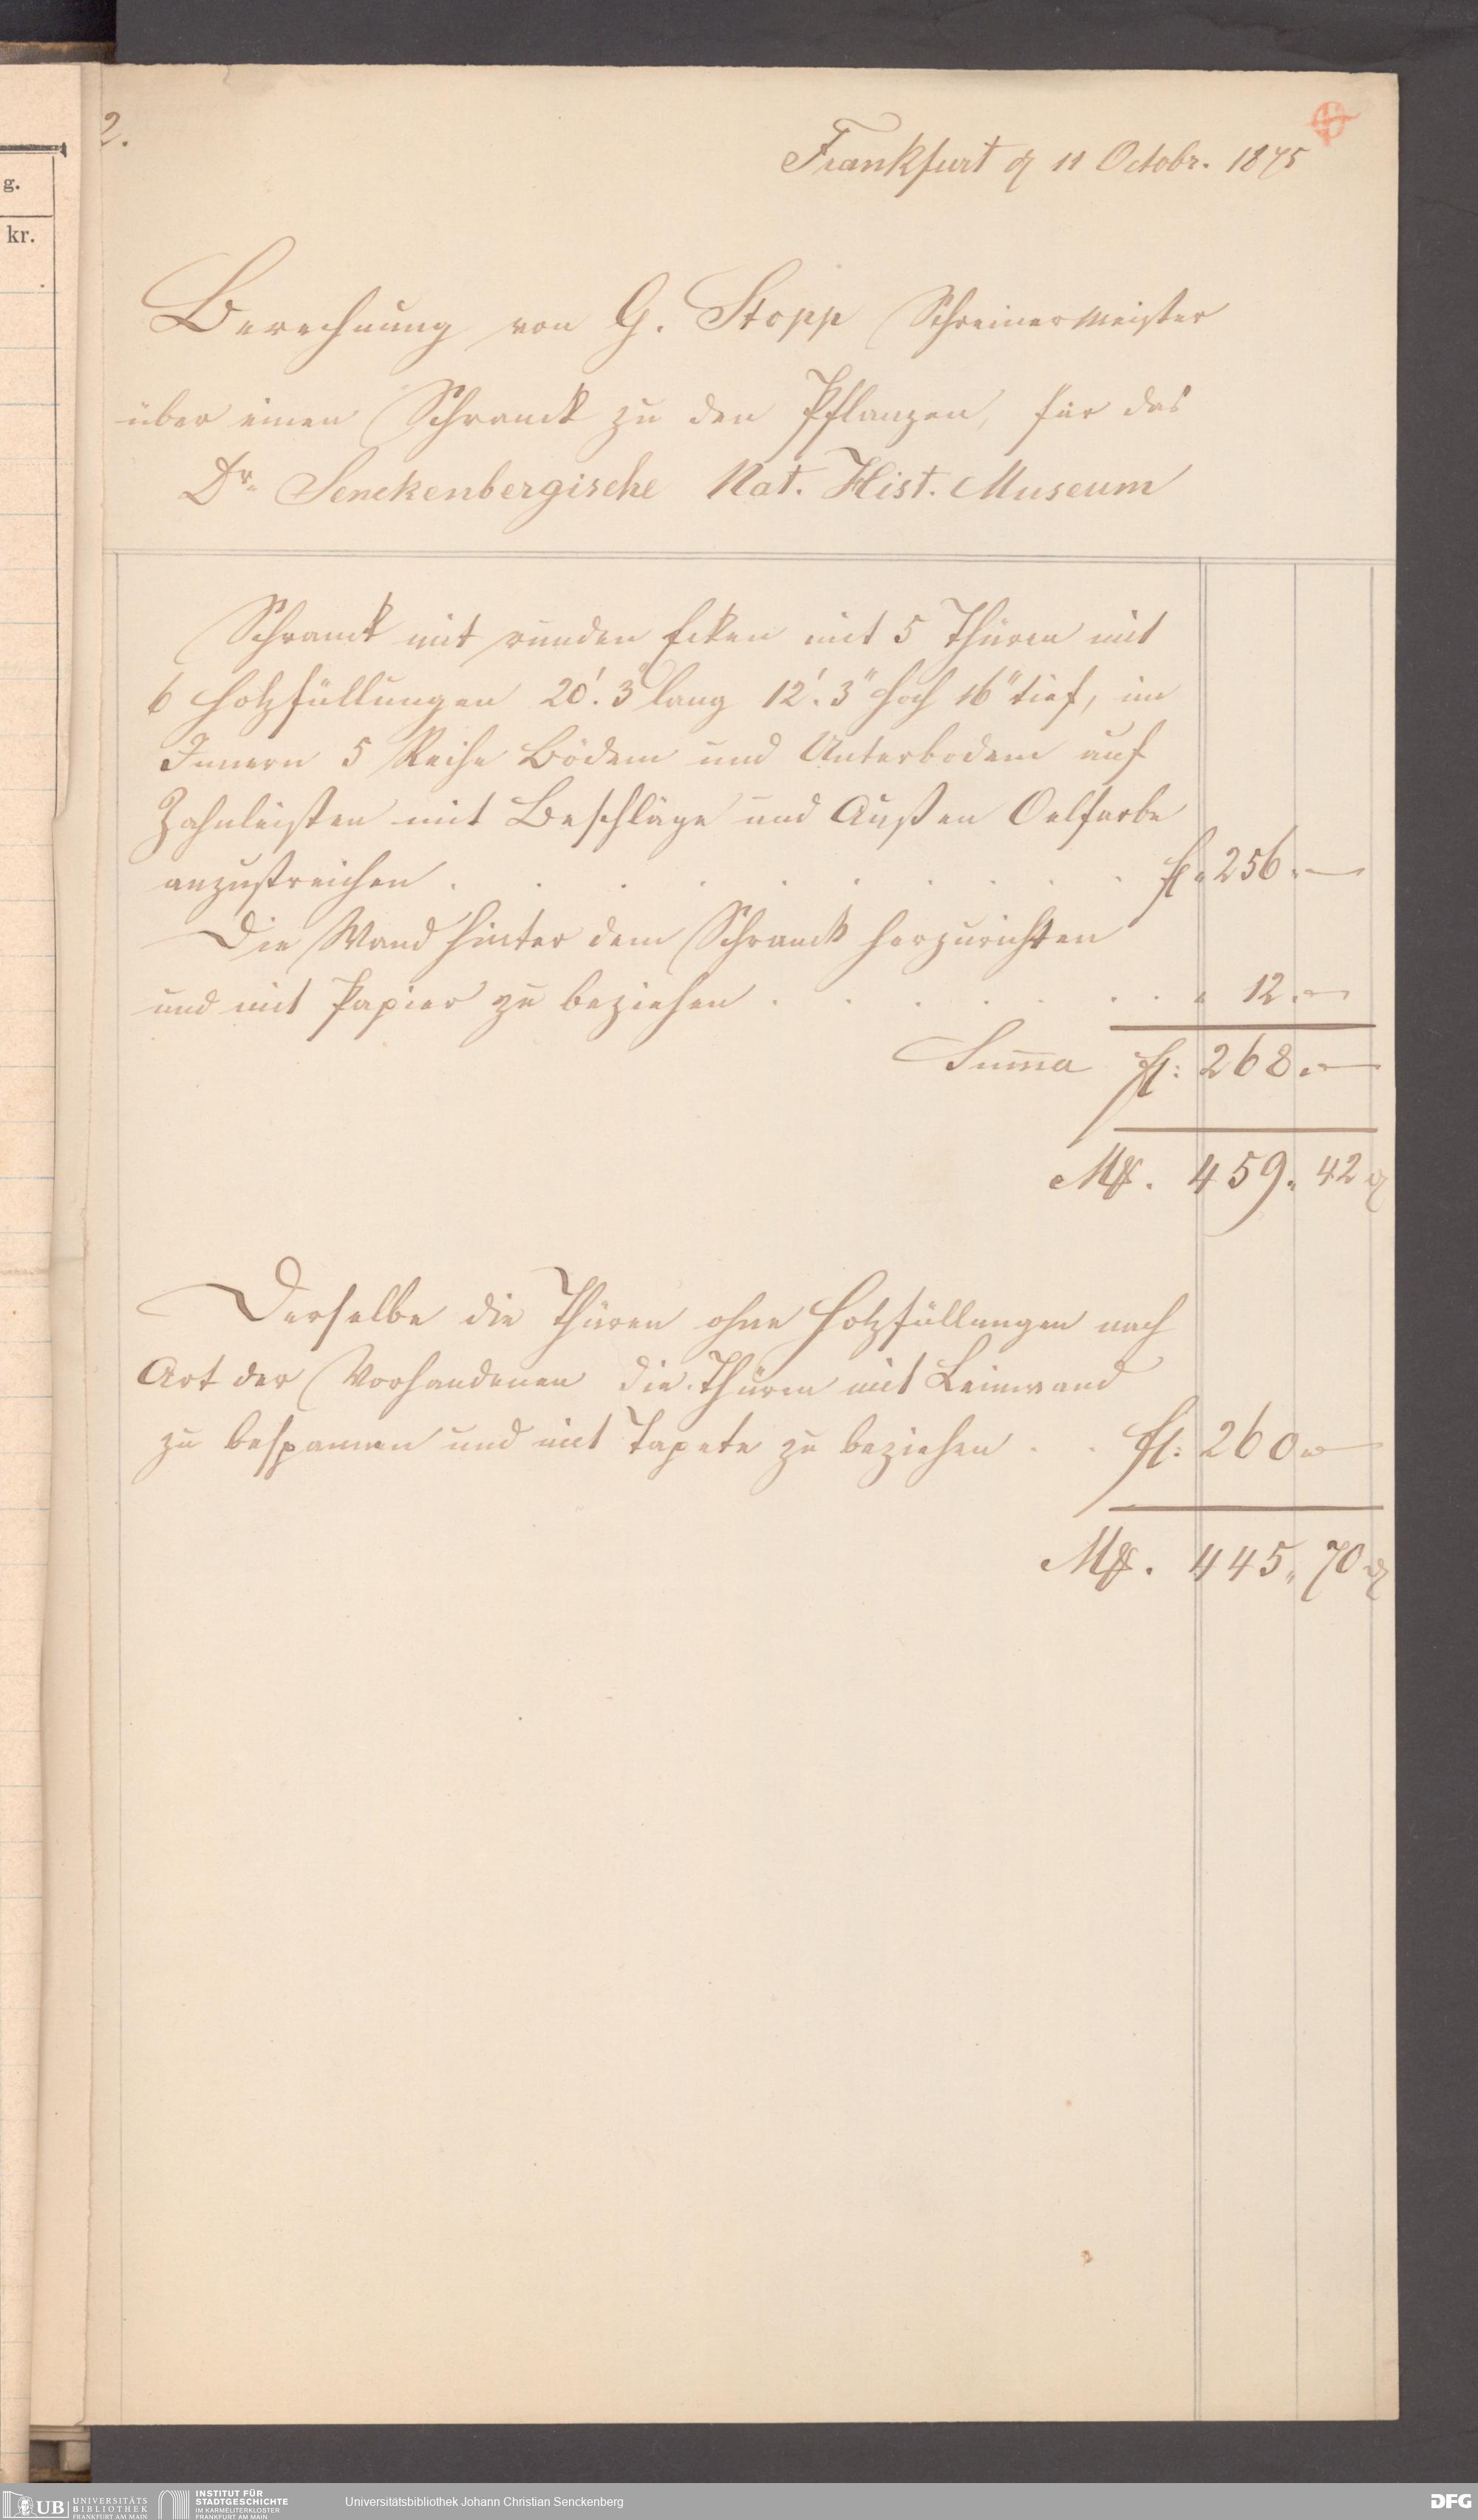 g.
kr.
2.
Frankfurt d 11 Octobr. 1875
Berechnung von G. Stopp Schreinermeister
über einen Schranck zu den Pflanzen, für das
Dr. Senckenbergische Nat. Hist. Museum
Schranck mit runden Ecken mit 5 Thüren mit
6 Holzfüllungen 20'. 3" lang 12'. 3" hoch 16" tief, im
Innern 5 Reihe Bödem und Unterbodem auf
Zahnleisten mit Beschläge und Außen Oelfarbe
anzustreichen . . . . . . . . . . fl " 256. —
Die Wand hinter dem Schranck herzurichten
und mit Papier zu beziehen . . . . . . . " 12. —
Summa fl: 268. —
Mk. 459. 42 d
Derselbe die Thüren ohne Holzfüllungen nach
Art der Vorhandenen die Thüren mit Leinwand
zu bespannen und mit Tapete zu beziehen . . fl: 260 —
Mk. 445, 70 d
UB UNIVERSITÄTS
BIBLIOTHEK
FRANKFURT AM MAIN
INSTITUT FÜR
STADTGESCHICHTE
IM KARMELITERKLOSTER
FRANKFURT AM MAIN
Universitätsbibliothek Johann Christian Senckenberg
DFG